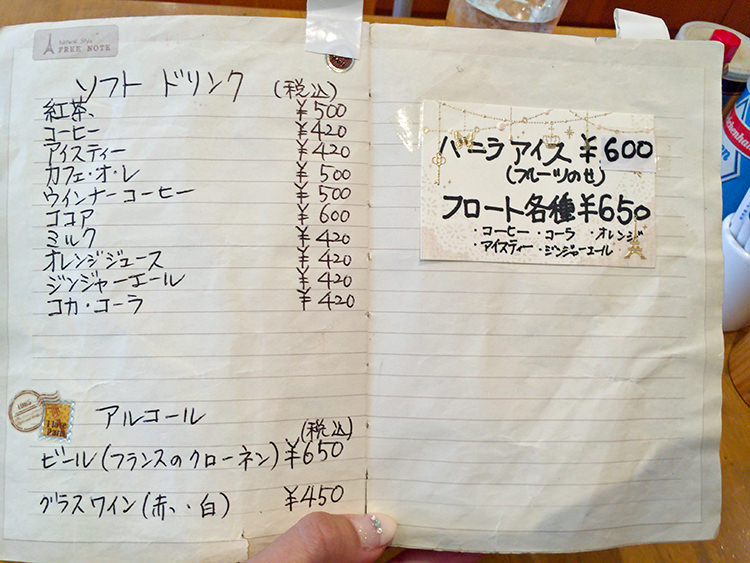 Natural Style
FREE NOTE
ソフト ドリンク (税込)
紅茶 ¥500
コーヒー ¥420
アイスティー ¥420
カフェ・オ・レ ¥500
ウインナーコーヒー ¥500
ココア ¥600
ミルク ¥420
オレンジジュース ¥420
ジンジャーエール ¥420
コカ・コーラ ¥420
アルコール
(税込)
ビール(フランスのクローネン) ¥650
グラスワイン(赤・白) ¥450
バニラアイス ¥600
(フルーツのせ)
フロート各種¥650
・コーヒー ・コーラ ・オレンジ
・アイスティー ・ジンジャーエール
I love
Paris